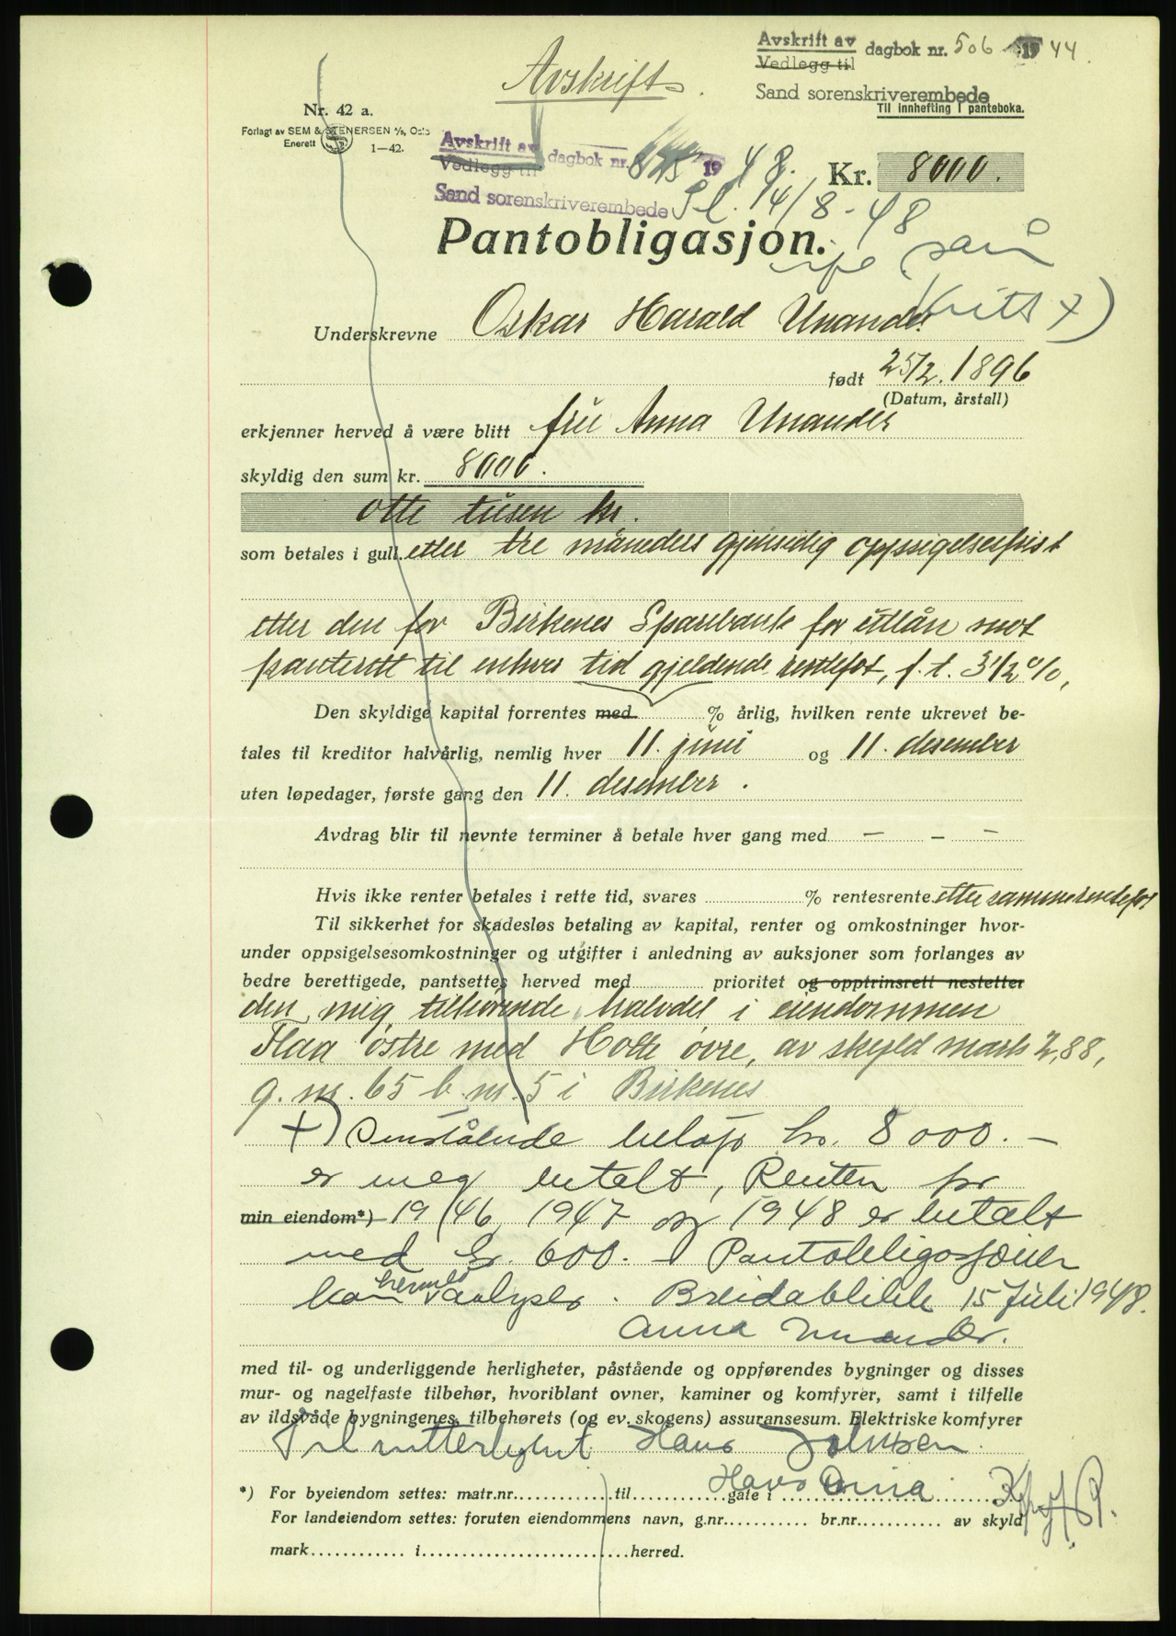 Avskrift av dagbok nr. 506 1944
Vedlegg til
Sand sorenskriverembede
Til innhefting i panteboka.
Avskrift
Nr. 42 a.
Forlagt av SEM & STENERSEN A/S, Oslo
Enerett 1—42.
Avskrift av dagbok nr. 19 48.
Vedlegg til
Sand sorenskriverembede
14/8-48
Kr. 8000.
Pantobligasjon.
Underskrevne Oskar Harald Unander
født 25/2. 1896
(Datum, årstall)
erkjenner herved å være blitt fru Anna Unander
skyldig den sum kr. 8000.
otte tusen kr.
som betales i gull etter tre måneders gjensidig oppsigelsesfrist
etter den for Birkenes Sparebank for utlån mot
panterett til enhver tid gjeldende rentefot, f. t. 3 1/2 %,
Den skyldige kapital forrentes med % årlig, hvilken rente ukrevet be-
tales til kreditor halvårlig, nemlig hver 11. juni og 11. desember
uten løpedager, første gang den 11. desember.
Avdrag blir til nevnte terminer å betale hver gang med — – –
Hvis ikke renter betales i rette tid, svares % rentesrente etter samme rentefot
Til sikkerhet for skadesløs betaling av kapital, renter og omkostninger hvor-
under oppsigelsesomkostninger og utgifter i anledning av auksjoner som forlanges av
bedre berettigede, pantsettes herved med prioritet og opptrinsrett nestetter
den mig tilhørende halvdel i eiendommen
Flaa østre med Holte øvre, av skyld mark 2,88,
g. nr. 65 b. nr. 5 i Birkenes
+) Omstående beløp kr. 8000. —
er meg betalt, Renten for
min eiendom*) 1946, 1947 og 1948 er betalt
med kr. 600. – Pantobligasjonen
kan herved avlyses. Breidablikk 15 Juli 1948.
Anna Unander.
med til- og underliggende herligheter, påstående og oppførendes bygninger og disses
mur- og nagelfaste tilbehør, hvoriblant ovner, kaminer og komfyrer, samt i tilfelle
av ildsvåde bygningenes, tilbehørets (og ev. skogens) assuransesum. Elektriske komfyrer
Til vitterlighet Hans
*) For byeiendom settes: matr.nr. til gate i
For landeiendom settes: foruten eiendommens navn, g.nr. br.nr. av skyld
mark i herred.